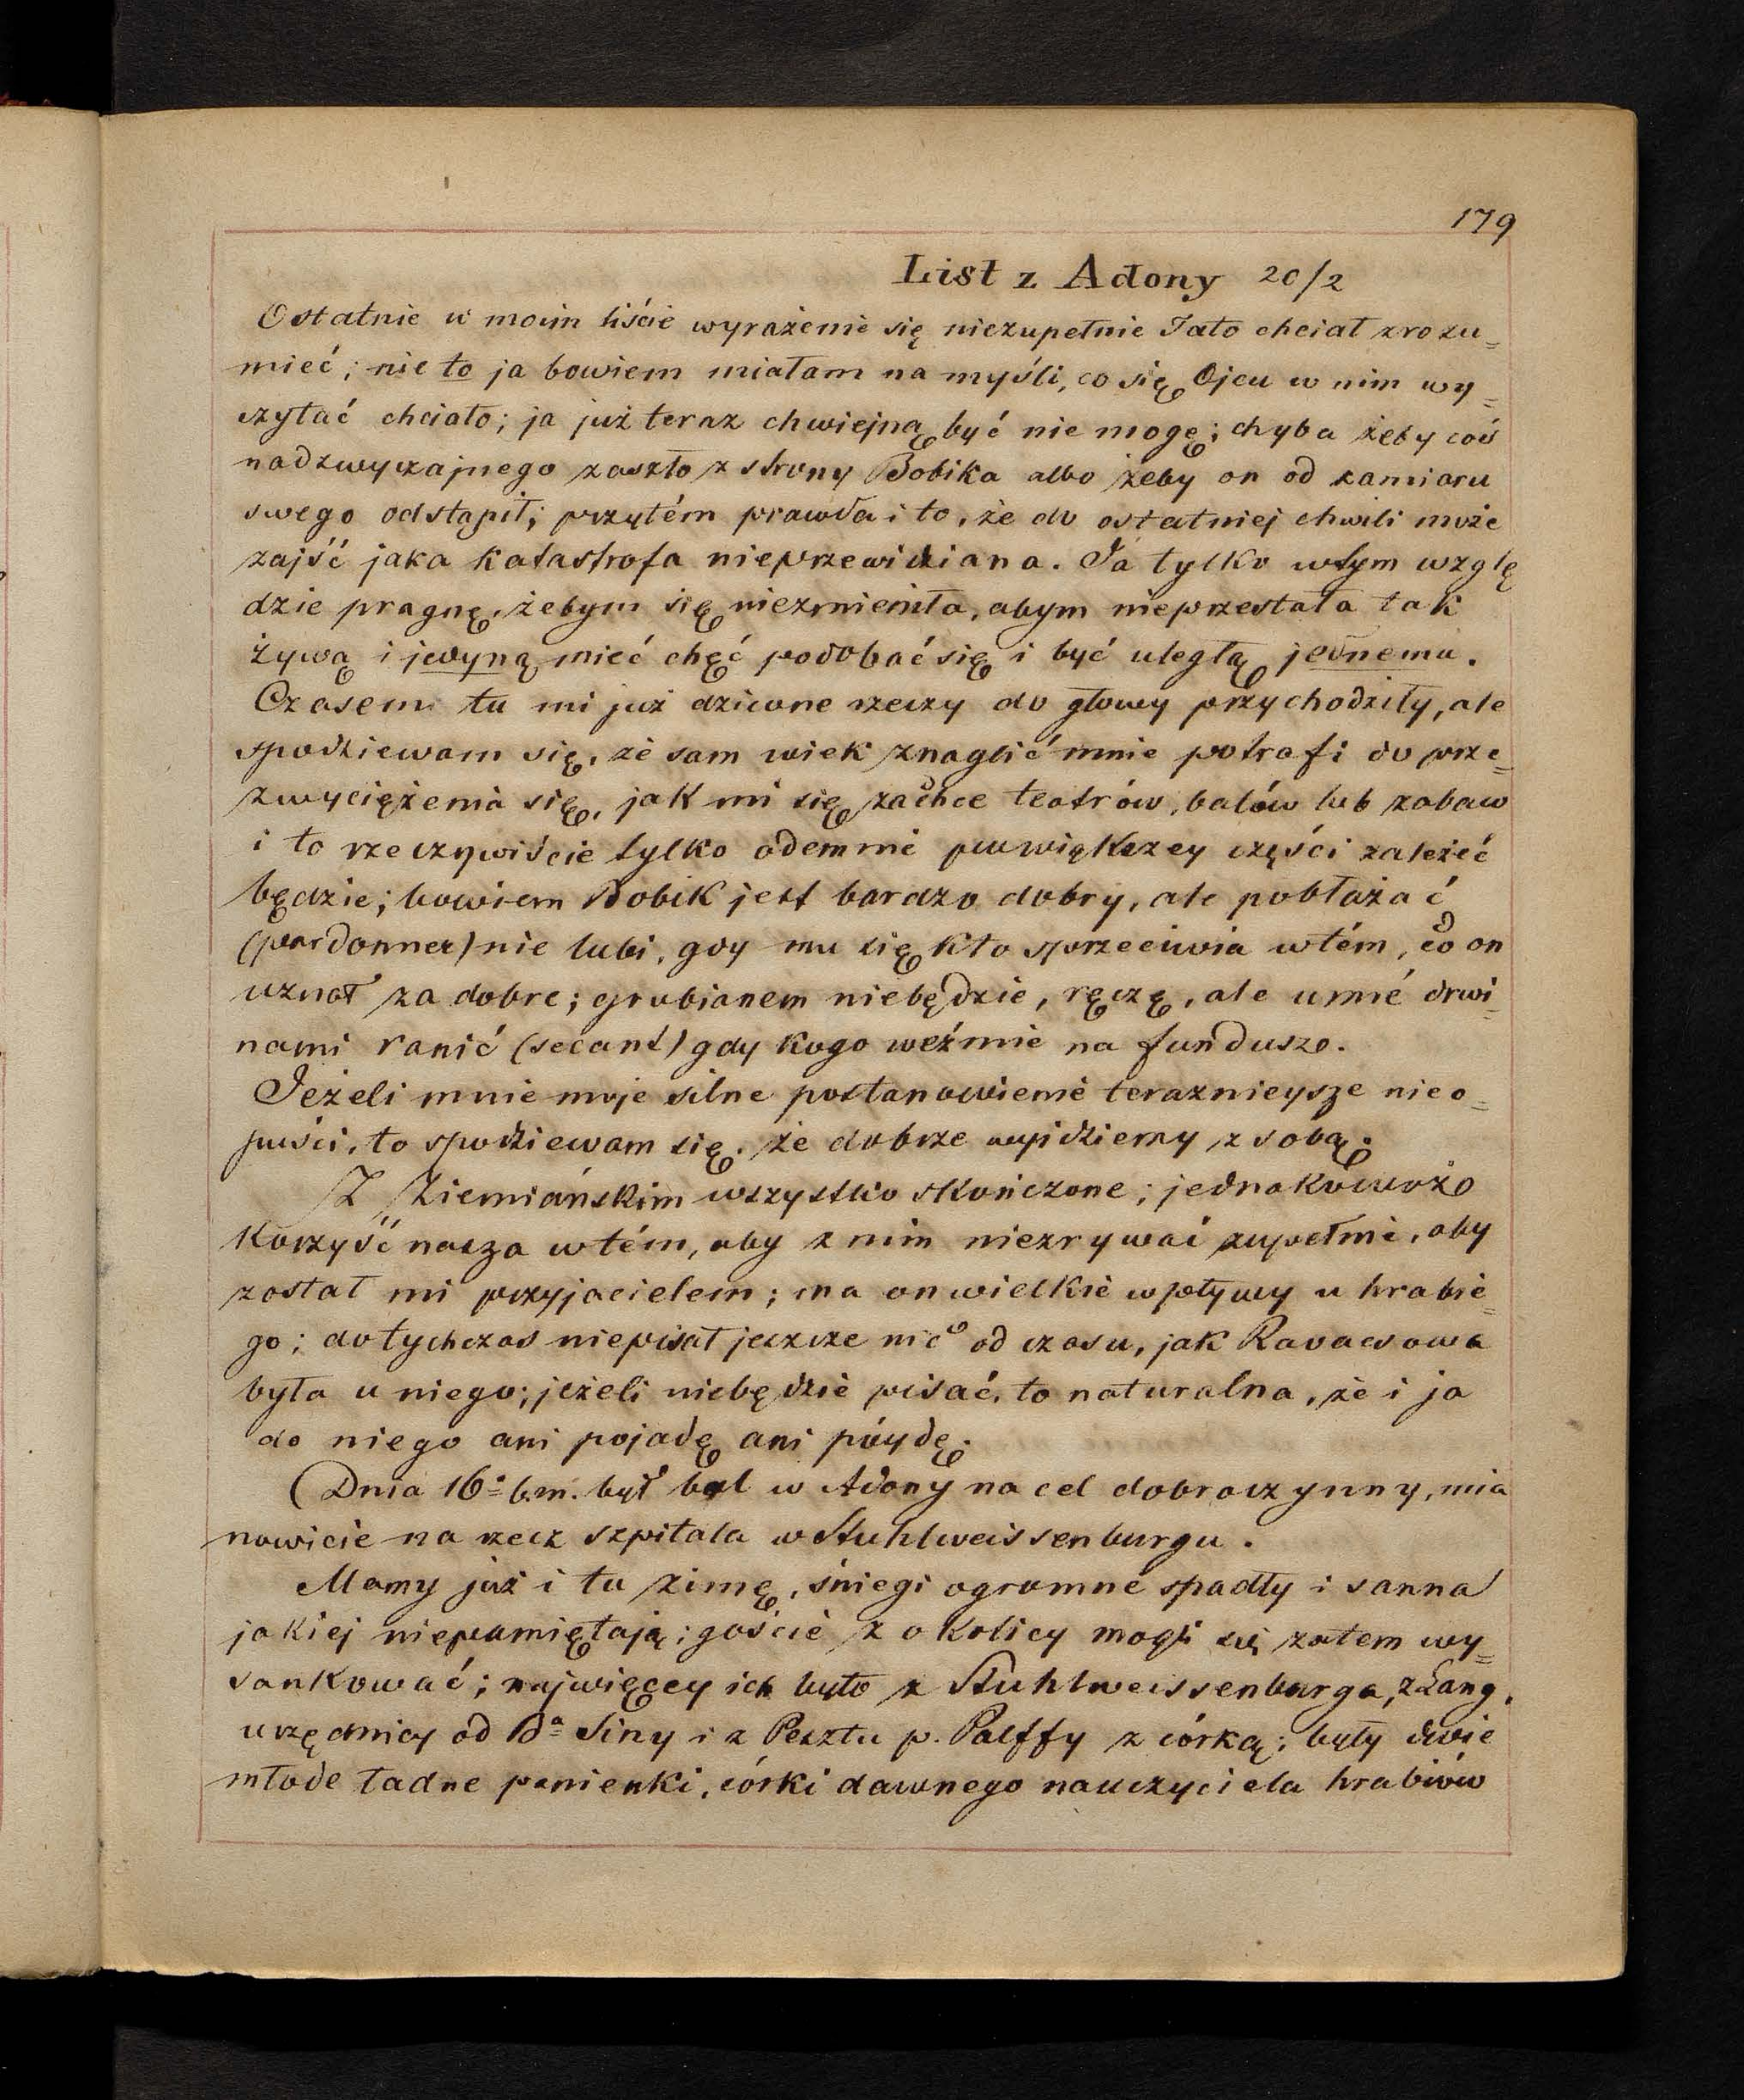 179
List z Adony 20/2
Ostatnie w moim liście wyrażenie się niezupełnie Tato chciał zrozu=
mieć; nie to ja bowiem miałam na myśli, co się Ojcu w nim wy=
czytać chciało; ja już teraz chwiejną być nie mogę; chyba żeby coś
nadzwyczajnego zaszło z strony Bobika albo żeby on od zamiaru
swego odstąpił; przytém prawda i to, że do ostatniej chwili może
zajść jaka katastrofa nieprzewidziana. Ja tylko wtym wzglę
dzie pragnę, żebym się niezmieniła, abym nieprzestała tak
żywą i jedyną mieć chęć podobać się i być uległą jednemu.
Czasem tu mi już dziwne rzeczy do głowy przychodziły, ale
spodziewam się, że sam wiek znaglić mnie potrafi do prze=
zwyciężenia się, jak mi się zachce teatrów, balów lub zabaw
i to rzeczywiście tylko odemnie powiększey części zależeć
będzie; bowiem Bobik jest bardzo dobry, ale pobłażać
(pardonner) nie lubi, gdy mu się kto sprzeciwia wtém, co on
uznał za dobre; grubianem niebędzie, ręczę, ale umié drwi=
nami ranić (secant) gdy kogo weźmie na fundusze.
Jeżeli mnie moje silne postanowienie teraznieysze nie o=
puści, to spodziewam się, że dobrze wyidziemy z sobą.
Z Ziemiańskim wszystko skończone; jednakowoż
korzyść nasza wtém, aby z nim niezrywać zupełnie, aby
został mi przyjacielem; ma on wielkie wpływy u hrabie=
go; dotychczas niepisał jeszcze nic od czasu, jak Kovacsowa
była u niego; jeżeli niebędzie pisać, to naturalna, że i ja
do niego ani pojadę ani póydę.
Dnia 16º b.m. był bal w Adony na cel dobroczynny, mia
nowicie na rzecz szpitala w Stuhlweissenburgu.
Mamy już i tu zimę, śniegi ogromne spadły i sanna
jakiej niepamiętają; goście z okolicy mogli się zatem wy=
sankować; najwięcey ich było z Stuhlweissenburga, z Lang,
urzędnicy od Bª Siny i z Pesztu p. Palffy z córką; były dwie
młode ładne panienki, córki dawnego nauczyciela hrabiów